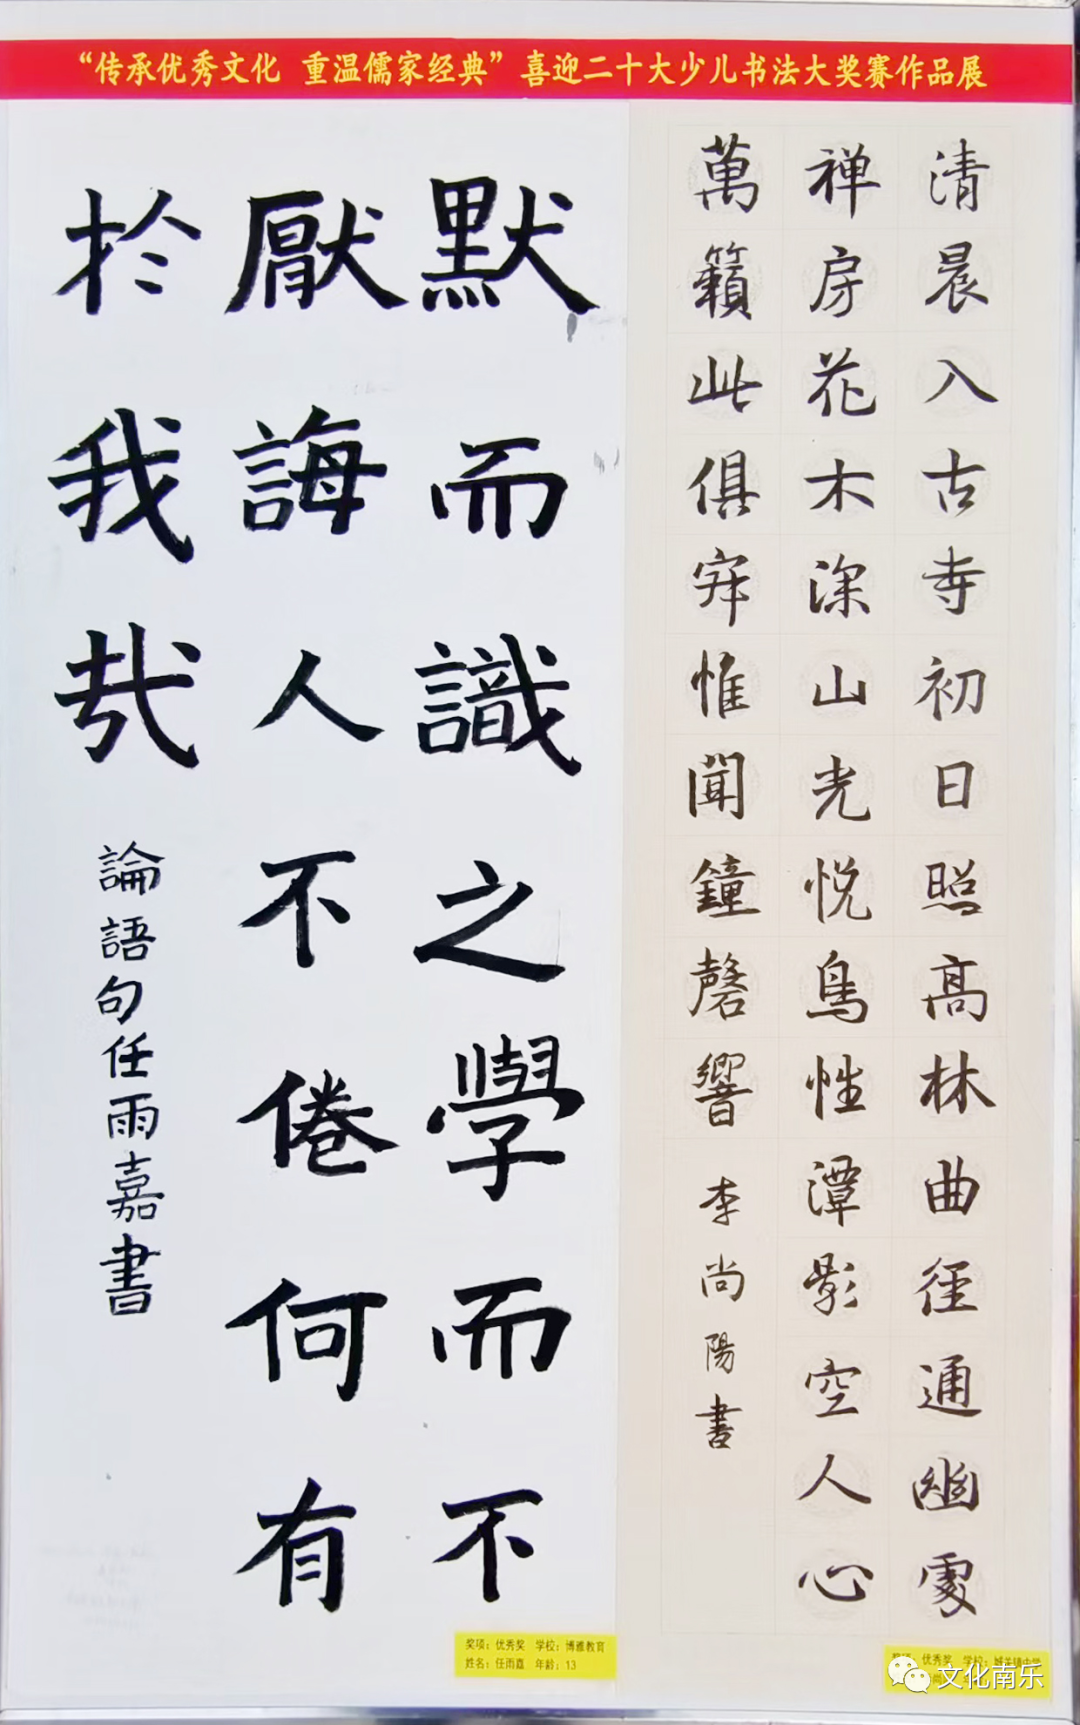 “传承优秀文化 重温儒家经典”喜迎二十大少儿书法大奖赛作品展
清晨入古寺初日照高林曲径通幽處
禅房花木深山光悦鳥性潭影空人心
萬籟此俱寂惟聞鐘磬響
李尚陽書
默而識之學而不
厭誨人不倦何有
於我哉
論語句任雨嘉書
奖项：优秀奖 学校：博雅教育
姓名：任雨嘉 年龄：13
奖项：优秀奖 学校：城关镇中学
文化南乐